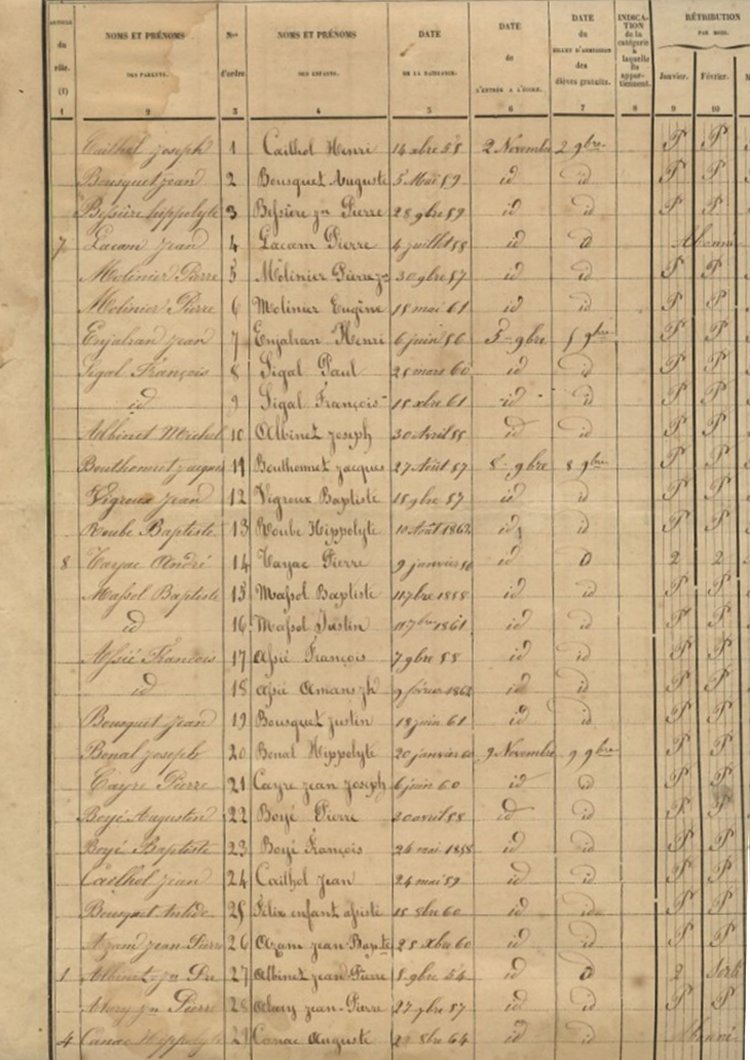 ARTICLE du rôle. (1) NOMS ET PRÉNOMS DES PARENTS. Nos d'ordre NOMS ET PRÉNOMS DES ENFANTS. DATE DE LA NAISSANCE. DATE de L'ENTRÉE A L'ÉCOLE. DATE du BILLET D'ADMISSION des élèves gratuits. INDICATION de la catégorie à laquelle ils appartiennent. RÉTRIBUTION PAR MOIS. Janvier. Février.
1 2 3 4 5 6 7 8 9 10
Cailhol joseph 1 Cailhol Henri 14 xbre 58 2 Novembre 2 9bre P P
Bousquet jean 2 Bousquet Auguste 5 Mai 59 id id P P
Bessière hippolyte 3 Bessière jn Pierre 28 9bre 59 id id P P
7 Lacam Jean 4 Lacam Pierre 4 juillet 58 id 0
Molinier Pierre 5 Molinier Pierre jn 30 9bre 57 id id P P
Molinier Pierre 6 Molinier Eugène 15 mai 61 id id P P
Enjalran jean 7 Enjalran Henri 6 juin 56 5 9bre 5 9bre P P
Sigal François 8 Sigal Paul 25 mars 60 id id P P
id 9 Sigal François 15 xbre 61 id id P P
Albinet Michel 10 Albinet joseph 30 Avril 55 id id P P
Bouthonnet jacques 11 Bouthonnet jacques 27 Août 57 8 9bre 8 9bre P P
Vigroux jean 12 Vigroux Baptiste 15 9bre 57 id id P P
Roube Baptiste 13 Roube Hippolyte 10 Août 1862 id id P P
8 Cayac André 14 Cayac Pierre 9 janvier 56 id 0 2 2
Massol Baptiste 15 Massol Baptiste 11 7bre 1858 id id P P
id 16 Massol Justin 11 7bre 1861 id id P P
Assié François 17 Assié François 7 9bre 58 id id P P
id 18 Assié Amans jh 9 février 1862 id id P P
Bousquet jean 19 Bousquet justin 18 juin 61 id id P P
Bonal joseph 20 Bonal Hippolyte 20 janvier 60 9 Novembre 9 9bre P P
Cayre Pierre 21 Cayre jean joseph 6 juin 60 id id P P
Boyé Augustin 22 Boyé Pierre 20 avril 58 id id P P
Boyé Baptiste 23 Boyé François 26 mai 1858 id id P P
Cailhol jean 24 Cailhol Jean 24 mai 59 id id P P
Bousquet 25 Félix enfant assisté 15 8bre 60 id id P P
Azam jean Pierre 26 Azam jean-Bapte 25 Xbre 60 id id P P
1 Albinet jn Pre 27 Albinet jean Pierre 8 9bre 54 id 0 2
jn Pierre 28 jean-Pierre 27 9bre 57 id id P P
4 Canac Hippolyte Canac Auguste 8bre 64 id id